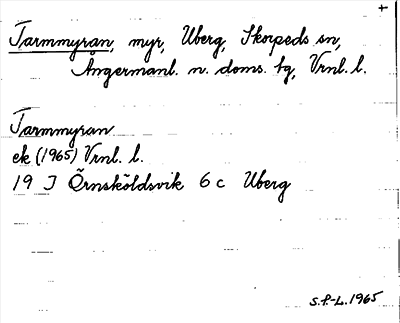 +
Tarmmyran, myr, Uberg, Skorpeds sn,
Ångermanl. n. doms. tg, Vrnl. l.
Tarmmyran
ek (1965) Vrnl. l.
19 J Örnsköldsvik 6 c Uberg
S.P.-L. 1965